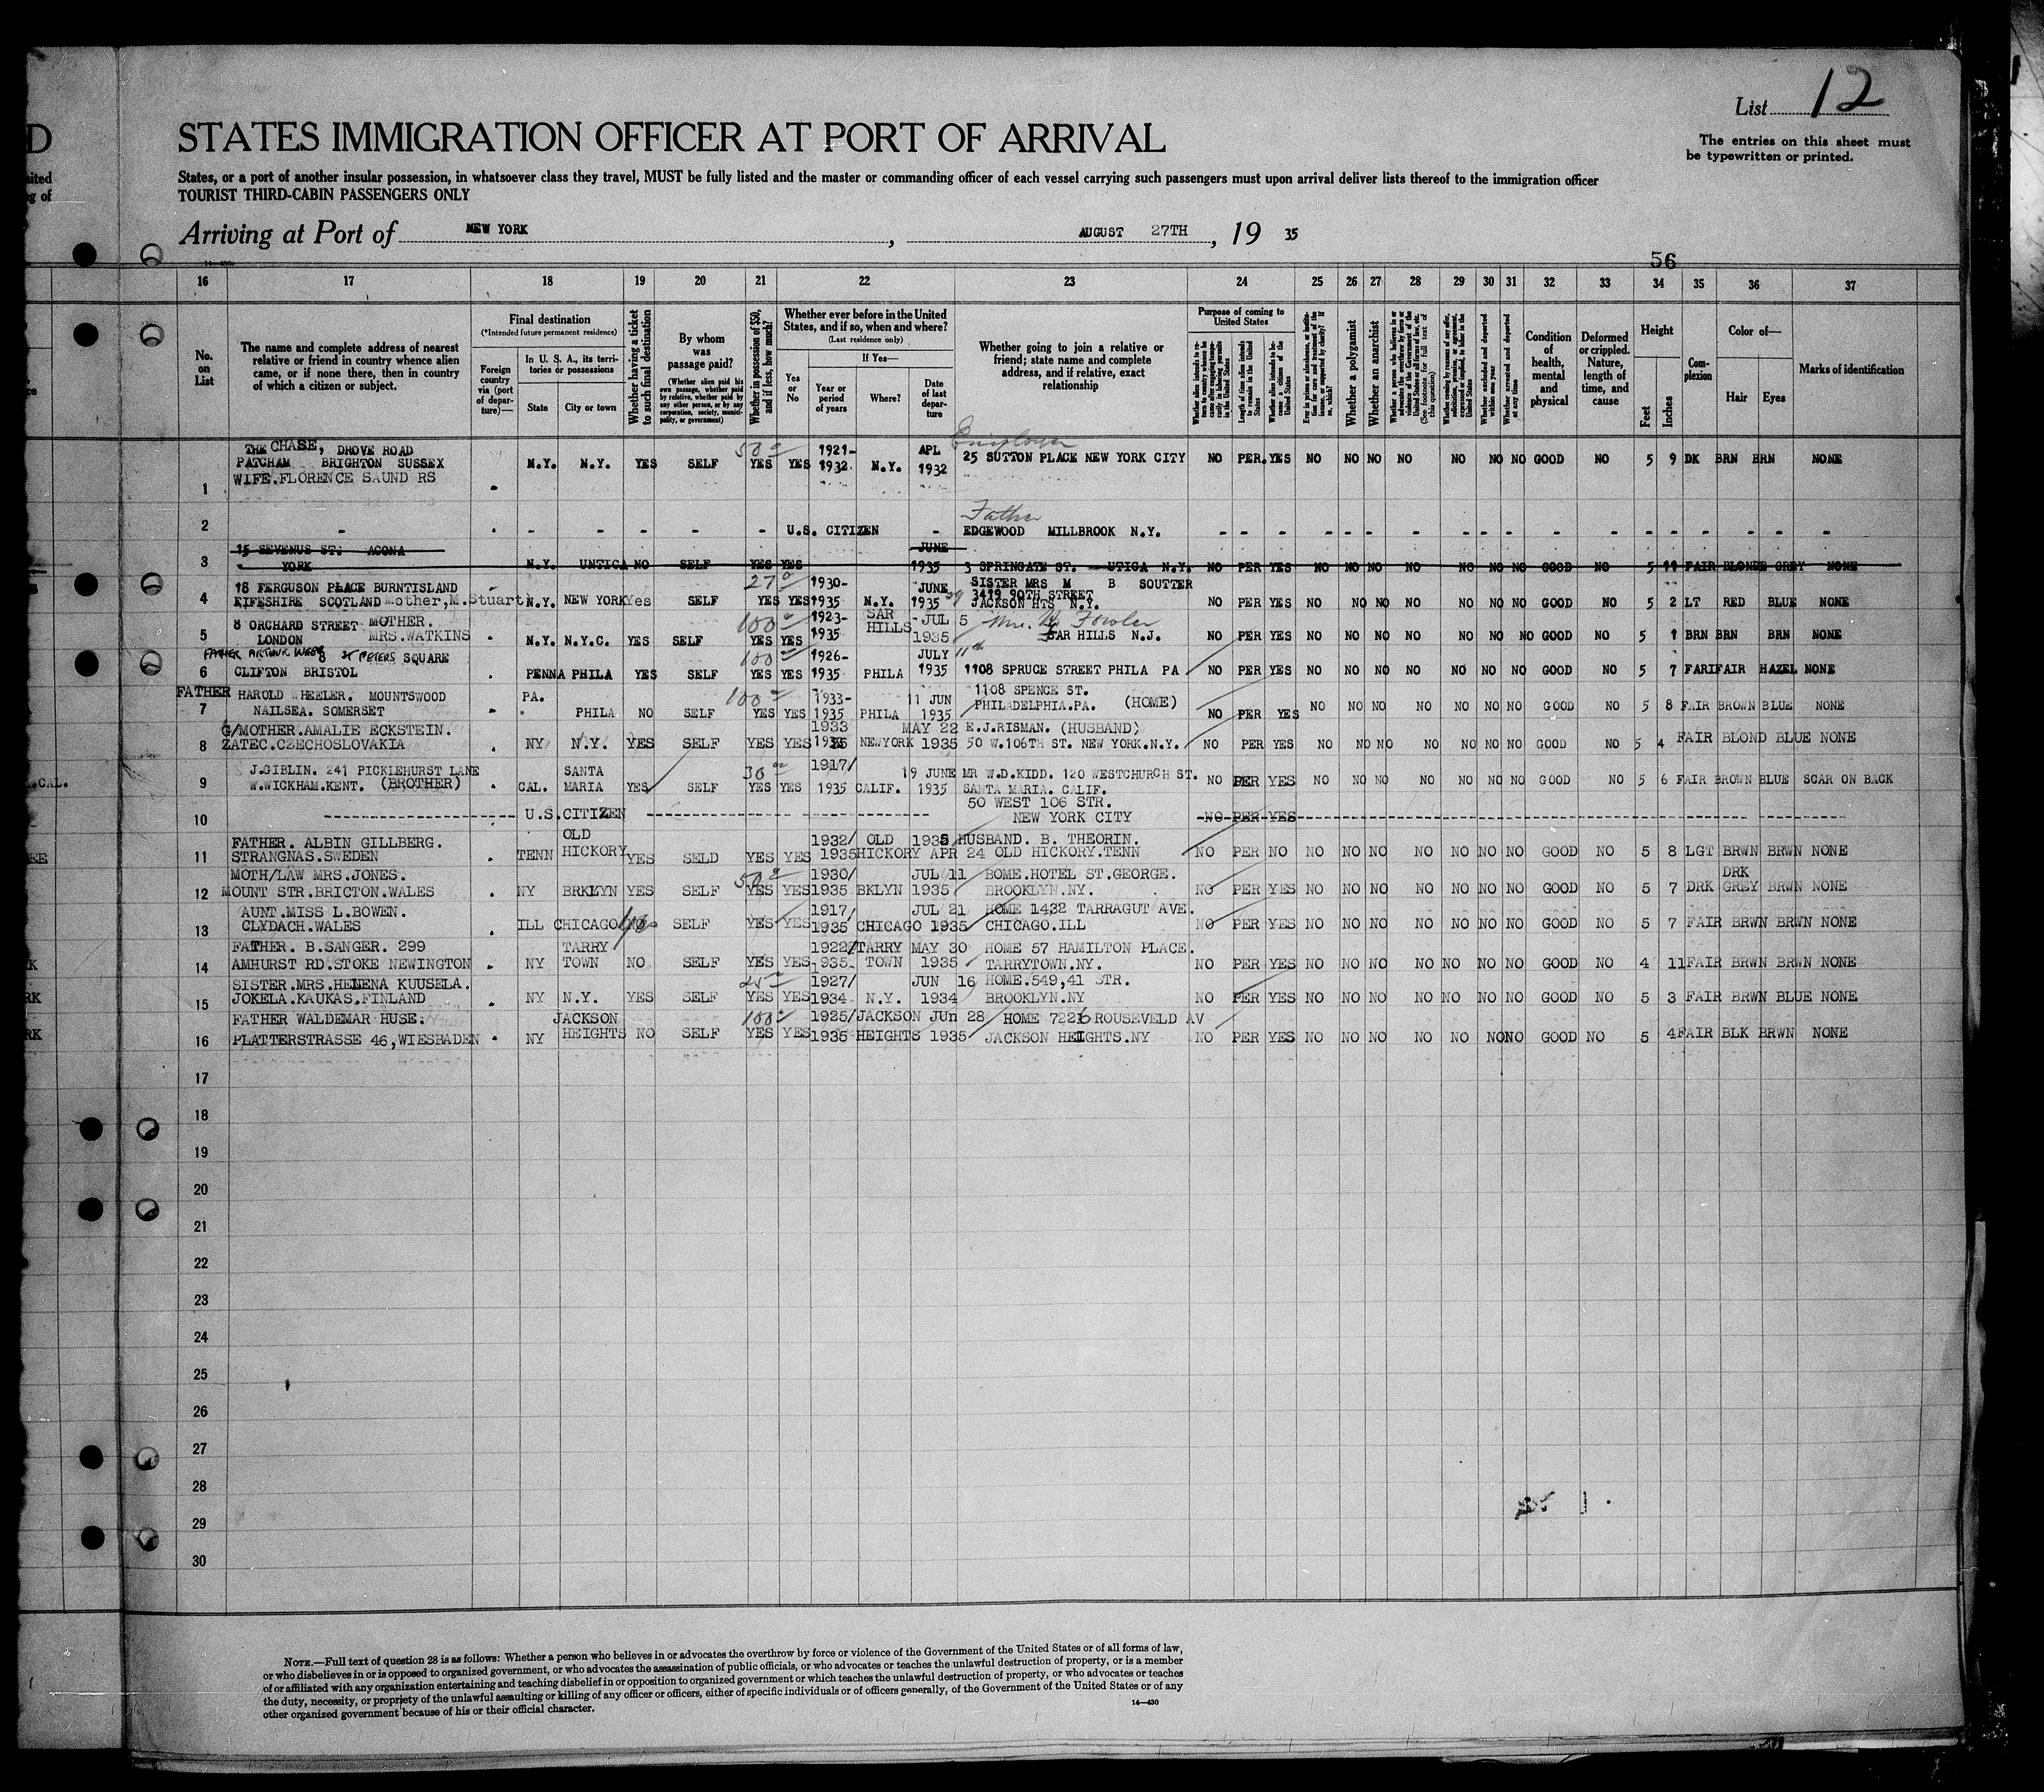 List 12
The entries on this sheet must
be typewritten or printed.
STATES IMMIGRATION OFFICER AT PORT OF ARRIVAL
States, or a port of another insular possession, in whatsoever class they travel, MUST be fully listed and the master or commanding officer of each vessel carrying such passengers must upon arrival deliver lists thereof to the immigration officer
TOURIST THIRD-CABIN PASSENGERS ONLY
Arriving at Port of NEW YORK, AUGUST 27TH, 19 35
56
16 17 18 19 20 21 22 23 24 25 26 27 28 29 30 31 32 33 34 35 36 37
No.
on
List
The name and complete address of nearest
relative or friend in country whence alien
came, or if none there, then in country
of which a citizen or subject.
Final destination
(*Intended future permanent residence)
Foreign
country
via (port
of depar-
ture)—
In U. S. A., its terri-
tories or possessions
State
City or town
Whether having a ticket
to such final destination
By whom
was
passage paid?
(Whether alien paid his
own passage, whether paid
by relative, whether paid by
any other person, or by any
corporation, society, munici-
pality, or government)
Whether in possession of $50,
and if less, how much?
Whether ever before in the United
States, and if so, when and where?
(Last residence only)
Yes
or
No
If Yes—
Year or
period
of years
Where?
Date
of last
depar-
ture
Whether going to join a relative or
friend; state name and complete
address, and if relative, exact
relationship
Purpose of coming to
United States
Length of time alien intends
to remain in the United
States
Whether alien intends to be-
come a citizen of the
United States
Whether a polygamist
Whether an anarchist
(See footnote for full text of
this question)
Whether arrested and deported
at any time
Condition
of
health,
mental
and
physical
Deformed
or crippled.
Nature,
length of
time, and
cause
Height
Feet
Inches
Com-
plexion
Color of—
Hair
Eyes
Marks of identification
THE CHASE, DROVE ROAD 50 1921- APL Employer
PATCHAM BRIGHTON SUSSEX N.Y. N.Y. YES SELF YES YES 1932 N.Y. 1932 25 SUTTON PLACE NEW YORK CITY NO PER. YES NO NO NO NO NO NO NO GOOD NO 5 9 DK BRN BRN NONE
1 WIFE.FLORENCE SAUND RS
Father
2 - - - - - - - U.S. CITIZEN - EDGEWOOD MILLBROOK N.Y. - - - - - - - - - - - - - - - - -
15 SEVENUS ST: ACONA JUNE
3 YORK N.Y. UNTICA NO SELF YES YES 1935 3 SPRINGATE ST. UTIGA N.Y. NO PER YES NO NO NO NO NO NO NO GOOD NO 5 11 FAIR BLONDE GREY NONE
18 FERGUSON PLACE BURNTISLAND 27 1930- JUNE SISTER MRS M B SOUTTER
3419 90TH STREET
4 FIFESHIRE SCOTLAND Mother, M.Stuart N.Y. NEW YORK Yes SELF YES YES 1935 N.Y. 1935 29 JACKSON HTS N.Y. NO PER YES NO NO NO NO NO NO NO GOOD NO 5 2 LT RED BLUE NONE
8 ORCHARD STREET MOTHER. 100 1923- SAR HILLS JUL 5 Mrs. Fowler
5 LONDON MRS.WATKINS N.Y. N.Y.C. YES SELF YES YES 1935 1935 FAR HILLS N.J. NO PER YES NO NO NO NO NO NO NO GOOD NO 5 1 BRN BRN BRN NONE
FATHER ARTHUR WEBB 8 ST PETERS SQUARE 100 1926- JULY 11th
6 CLIFTON BRISTOL PENNA PHILA YES SELF YES YES 1935 PHILA 1935 1108 SPRUCE STREET PHILA PA NO PER YES NO NO NO NO NO NO NO GOOD NO 5 7 FARI FAIR HAZEL NONE
FATHER HAROLD WHEELER. MOUNTSWOOD PA. 100 1933- 11 JUN 1108 SPENCE ST.
7 NAILSEA. SOMERSET PHILA NO SELF YES YES 1935 PHILA 1935 PHILADELPHIA.PA. (HOME) NO PER YES NO NO NO NO NO NO NO GOOD NO 5 8 FAIR BROWN BLUE NONE
G/MOTHER.AMALIE ECKSTEIN. 1933 MAY 22 E.J.RISMAN. (HUSBAND)
8 ZATEC.CZECHOSLOVAKIA NY N.Y. YES SELF YES YES 1935 NEWYORK 1935 50 W.106TH ST. NEW YORK.N.Y. NO PER YES NO NO NO NO NO NO NO GOOD NO 5 4 FAIR BLOND BLUE NONE
J.GIBLIN. 241 PICKLEHURST LANE SANTA 30 1917/ 19 JUNE MR W.D.KIDD. 120 WESTCHURCH ST.
9 W.WICKHAM.KENT. (BROTHER) CAL. MARIA YES SELF YES YES 1935 CALIF. 1935 SANTA MARIA. CALIF. NO PER YES NO NO NO NO NO NO NO GOOD NO 5 6 FAIR BROWN BLUE SCAR ON BACK
50 WEST 106 STR.
10 ---------- U.S.CITIZEN ---------- NEW YORK CITY -NO-PER-YES----------
OLD
FATHER. ALBIN GILLBERG. 1932/ OLD 1935 HUSBAND. B. THEORIN.
11 STRANGNAS.SWEDEN TENN HICKORY YES SELD YES YES 1935 HICKORY APR 24 OLD HICKORY.TENN NO PER NO NO NO NO NO NO NO NO GOOD NO 5 8 LGT BRWN BRWN NONE
MOTH/LAW MRS.JONES. 50 1930/ JUL 11 BOME.HOTEL ST.GEORGE. DRK
12 MOUNT STR.BRICTON.WALES NY BRKLYN YES SELF YES YES 1935 BKLYN 1935 BROOKLYN.NY. NO PER YES NO NO NO NO NO NO NO GOOD NO 5 7 DRK GREY BRWN NONE
AUNT.MISS L.BOWEN. 1917/ JUL 21 HOME 1432 TARRAGUT AVE.
13 CLYDACH.WALES ILL CHICAGO NO SELF YES YES 1935 CHICAGO 1935 CHICAGO.ILL NO PER YES NO NO NO NO NO NO NO GOOD NO 5 7 FAIR BRWN BRWN NONE
FATHER. B.SANGER. 299 TARRY 1922/ TARRY MAY 30 HOME 57 HAMILTON PLACE.
14 AMHURST RD.STOKE NEWINGTON NY TOWN NO SELF YES YES 935 TOWN 1935 TARRYTOWN.NY. NO PER YES NO NO NO NO NO NO NO GOOD NO 4 11 FAIR BRWN BRWN NONE
SISTER.MRS.HELENA KUUSELA. 25 1927/ JUN 16 HOME.549,41 STR.
15 JOKELA.KAUKAS.FINLAND NY N.Y. YES SELF YES YES 1934 N.Y. 1934 BROOKLYN.NY NO PER YES NO NO NO NO NO NO NO GOOD NO 5 3 FAIR BRWN BLUE NONE
FATHER WALDEMAR HUSE. JACKSON 100 1925/ JACKSON JUn 28 HOME 7226 ROUSEVELD AV
16 PLATTERSTRASSE 46,WIESBADEN NY HEIGHTS NO SELF YES YES 1935 HEIGHTS 1935 JACKSON HEIGHTS.NY NO PER YES NO NO NO NO NO NO NO GOOD NO 5 4 FAIR BLK BRWN NONE
17
18
19
20
21
22
23
24
25
26
27
28
29
30
NOTE.—Full text of question 28 is as follows: Whether a person who believes in or advocates the overthrow by force or violence of the Government of the United States or of all forms of law,
or who disbelieves in or is opposed to organized government, or who advocates the assassination of public officials, or who advocates or teaches the unlawful destruction of property, or is a member
of or affiliated with any organization entertaining and teaching disbelief in or opposition to organized government or which teaches the unlawful destruction of property, or who advocates or teaches
the duty, necessity, or propriety of the unlawful assaulting or killing of any officer or officers, either of specific individuals or of officers generally, of the Government of the United States or of any
other organized government because of his or their official character.
14—430